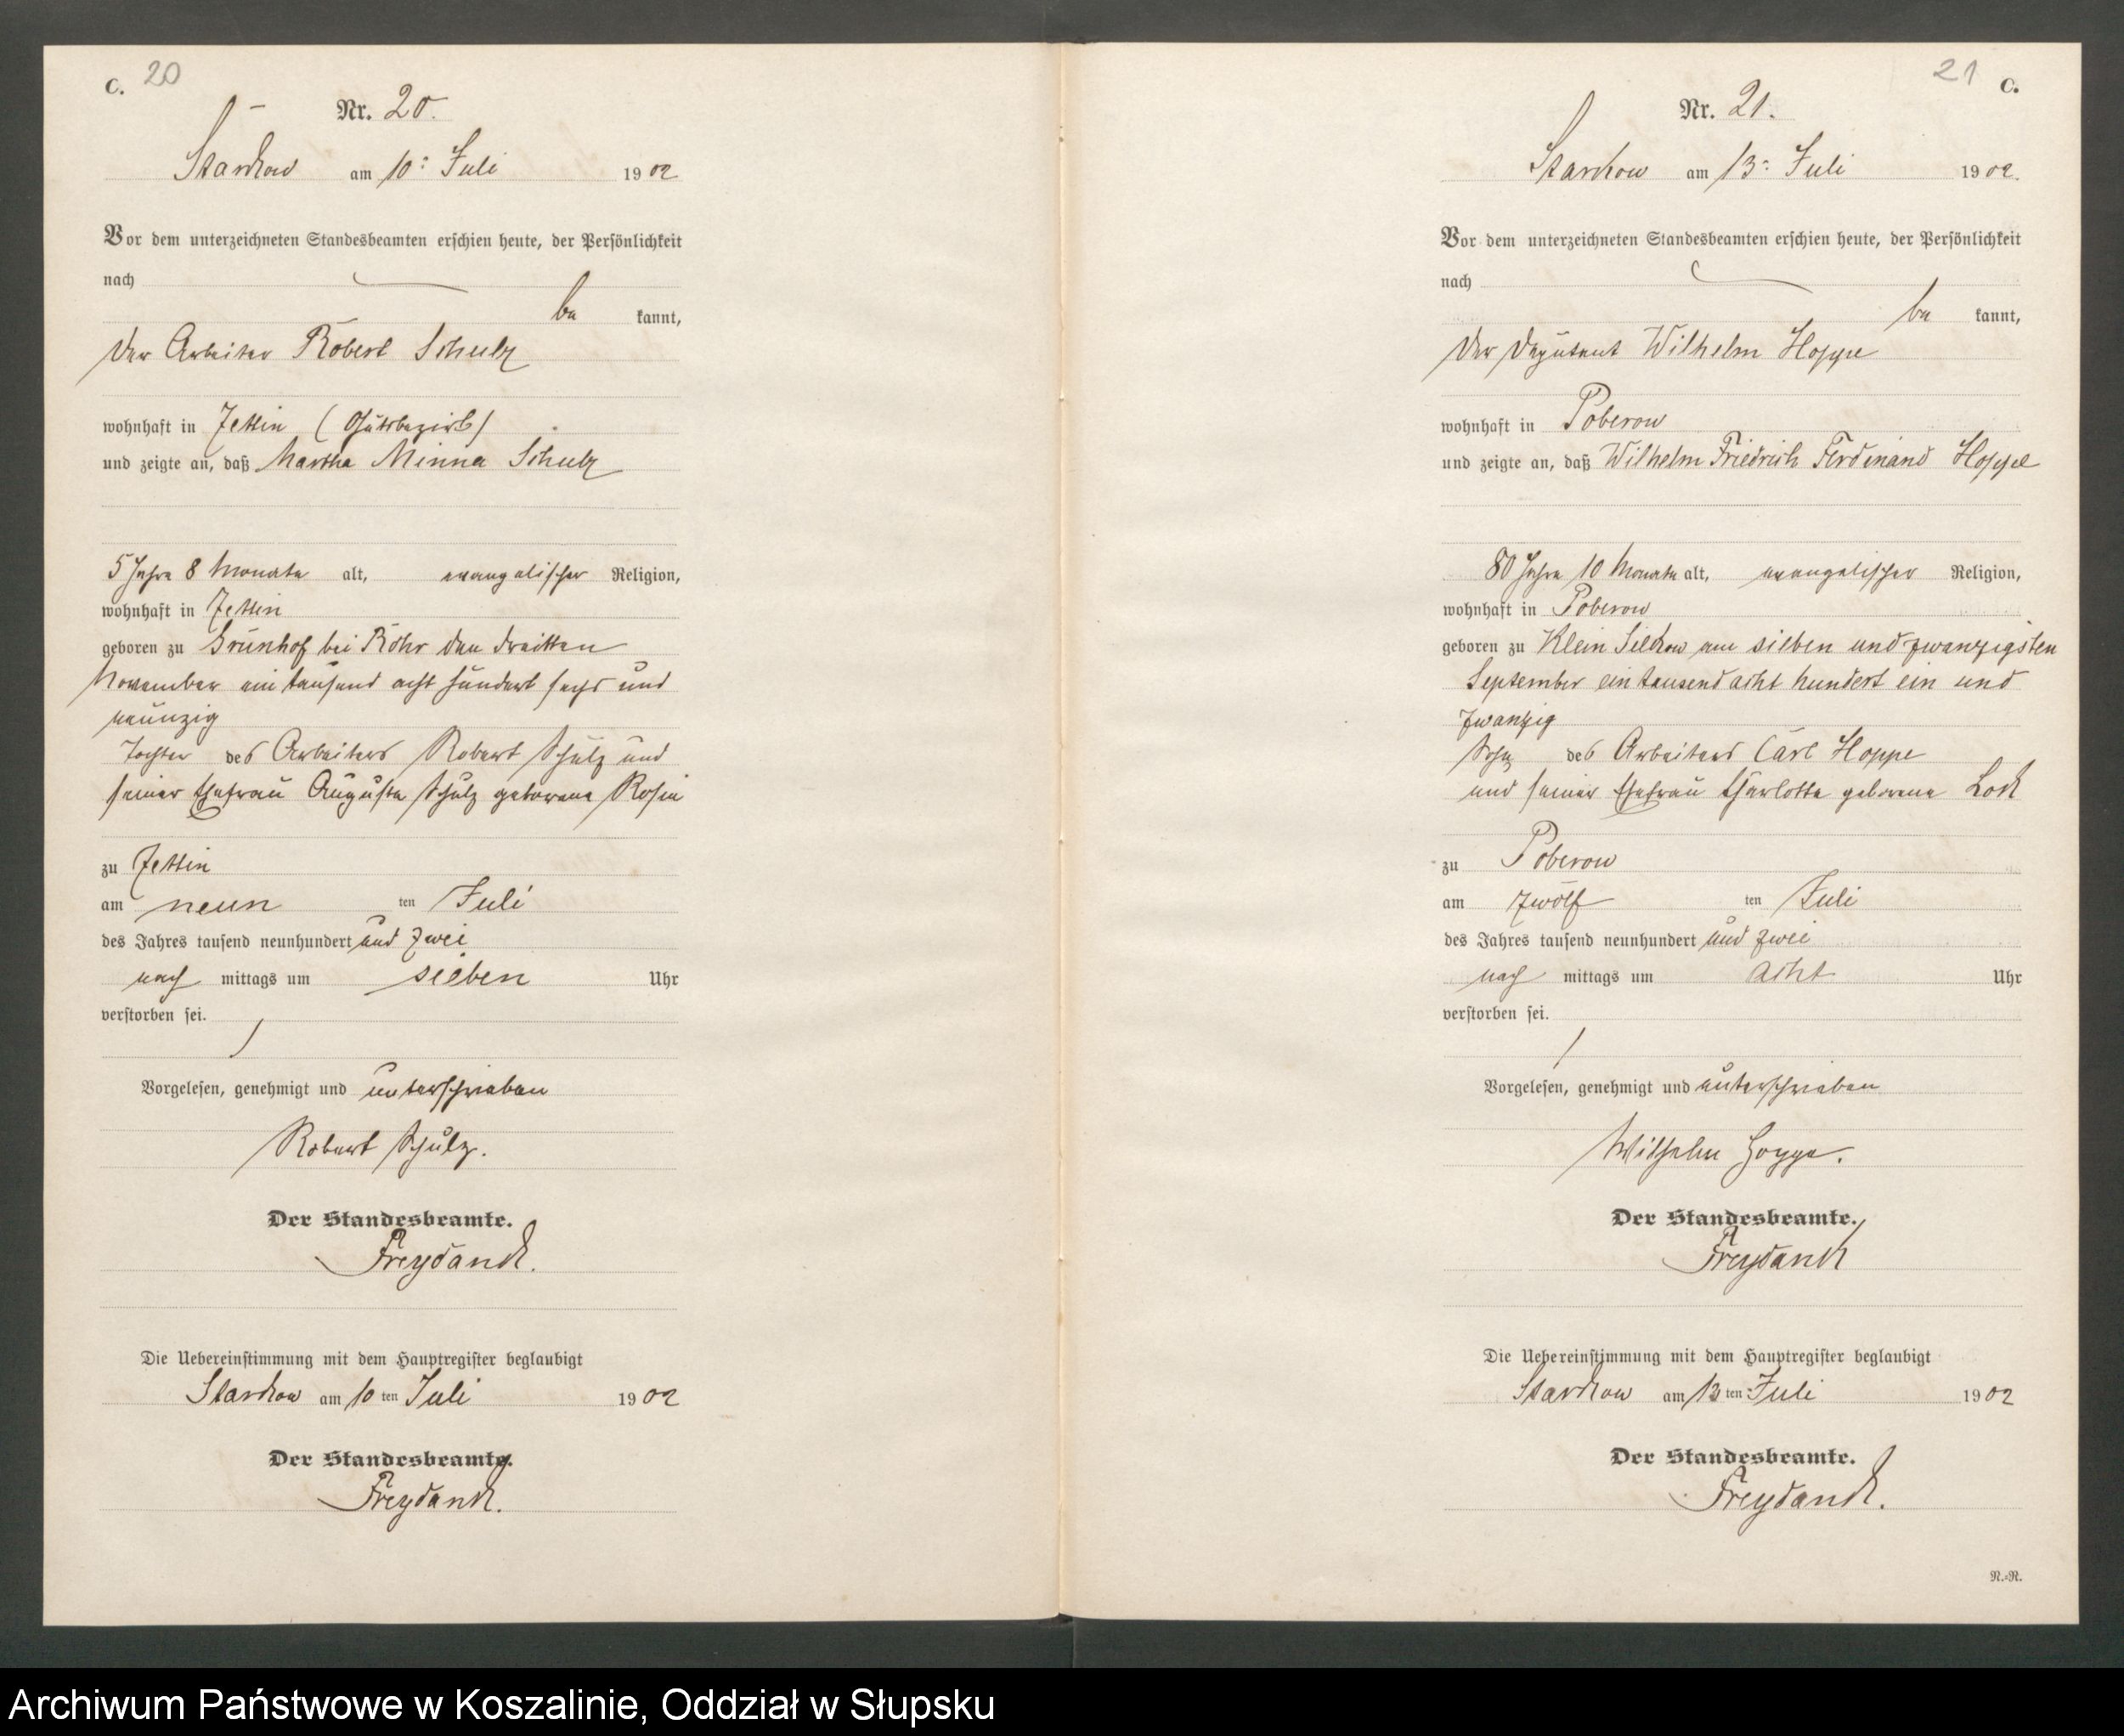 C. 20
Nr. 20.
Starkow am 10: Juli 1902
Vor dem unterzeichneten Standesbeamten erschien heute, der Persönlichkeit
nach
be kannt,
der Arbeiter Robert Schulz
wohnhaft in Jettin (Gutsbezirk)
und zeigte an, daß Martha Minna Schulz
5 Jahre 8 Monate alt, evangelischer Religion,
wohnhaft in Jettin
geboren zu Grünhof bei Rohr den dreitten
November ein tausend acht hundert sechs und
neunzig
Tochter des Arbeiters Robert Schulz und
seiner Ehefrau Auguste Schulz geborene Rosin
zu Jettin
am neun ten Juli
des Jahres tausend neunhundert und zwei
nach mittags um sieben Uhr
verstorben sei.
Vorgelesen, genehmigt und unterschrieben
Robert Schulz.
Der Standesbeamte.
Freydanck.
Die Uebereinstimmung mit dem Hauptregister beglaubigt
Starkow am 10 ten Juli 1902
Der Standesbeamte.
Freydanck.
21 C.
Nr. 21.
Starkow am 13: Juli 1902.
Vor dem unterzeichneten Standesbeamten erschien heute, der Persönlichkeit
nach
be kannt,
der Deputant Wilhelm Hoppe
wohnhaft in Poberow
und zeigte an, daß Wilhelm Friedrich Ferdinand Hoppe
80 Jahre 10 Monate alt, evangelischer Religion,
wohnhaft in Poberow
geboren zu Klein Silkow am sieben und zwanzigsten
September ein tausend acht hundert ein und
zwanzig
Sohn des Arbeiters Carl Hoppe
und seiner Ehefrau Charlotte geborene Lock
zu Poberow
am zwölf ten Juli
des Jahres tausend neunhundert und zwei
nach mittags um acht Uhr
verstorben sei.
Vorgelesen, genehmigt und unterschrieben
Wilhelm Hoppe.
Der Standesbeamte.
Freydanck
Die Uebereinstimmung mit dem Hauptregister beglaubigt
Starkow am 13 ten Juli 1902
Der Standesbeamte.
Freydanck.
R.-R.
Archiwum Państwowe w Koszalinie, Oddział w Słupsku